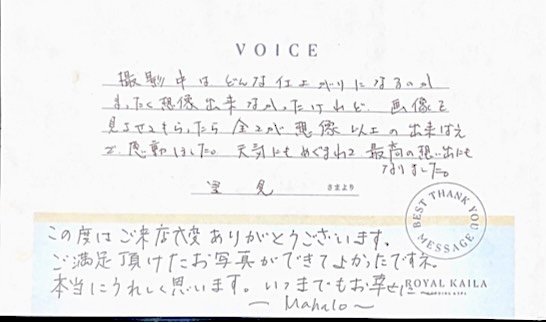 VOICE
撮影中はどんな仕上がりになるのか
まったく想像出来なかったけれど 画像を
見させてもらったら 全てが想像以上の出来ばえ
で、感動しました。天気にもめぐまれて 最高の想い出にも
なりました。
里見 さまより
BEST THANK YOU MESSAGE
この度はご来店大変ありがとうございます。
ご満足頂けたお写真ができてよかったですネ。
本当にうれしく思います。いつまでもお幸せに
ROYAL KAILA
〜 Mahalo 〜